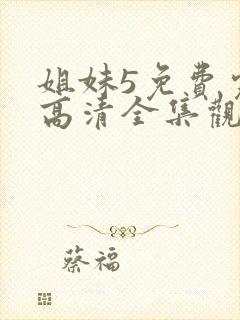 姐妹5免費
高清全集觀
蔡福